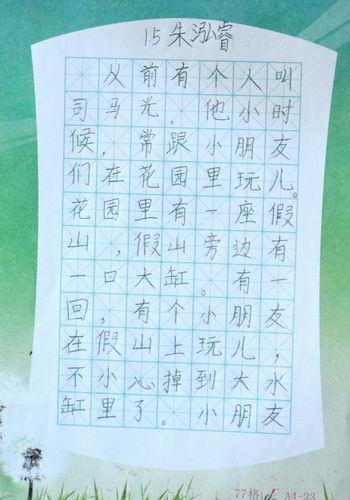 15朱泓睿
从前有个人叫
司马光。他小时
候，常跟小朋友
们在花园里玩儿。
花园里有一座假
山，假山旁边有
一口大缸。有一
回，有个小朋友
在假山上玩儿，
不小心掉到大水
缸里了。小朋友
77格 A4-23